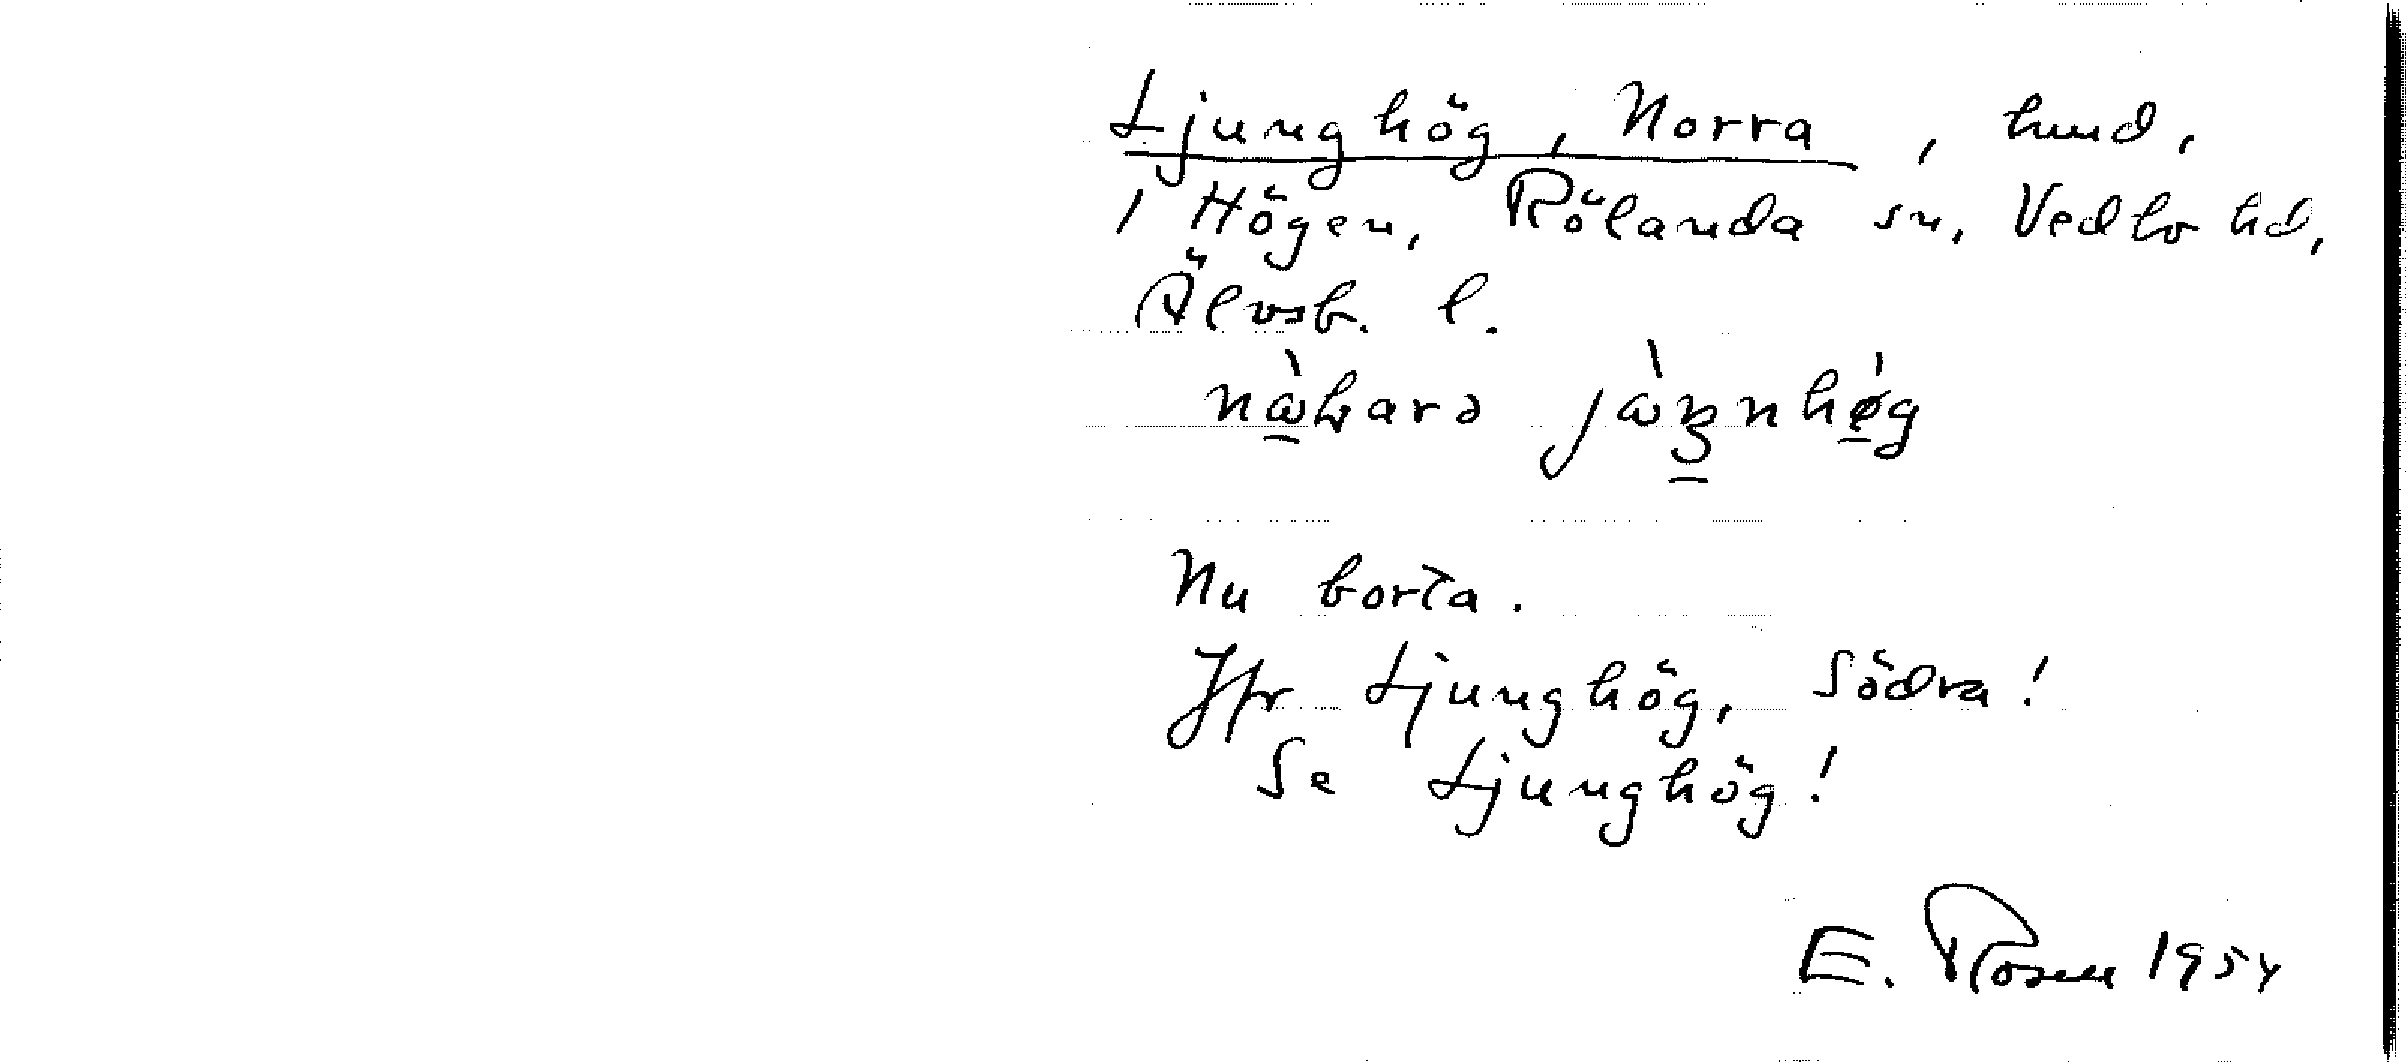 Ljunghög, Norra, lund,
i Högen, Rölanda sn, Vedbo hd,
Älvsb. l.
Nu borta.
Jfr Ljunghög, Södra!
Se Ljunghög!
E. Rosen 1954